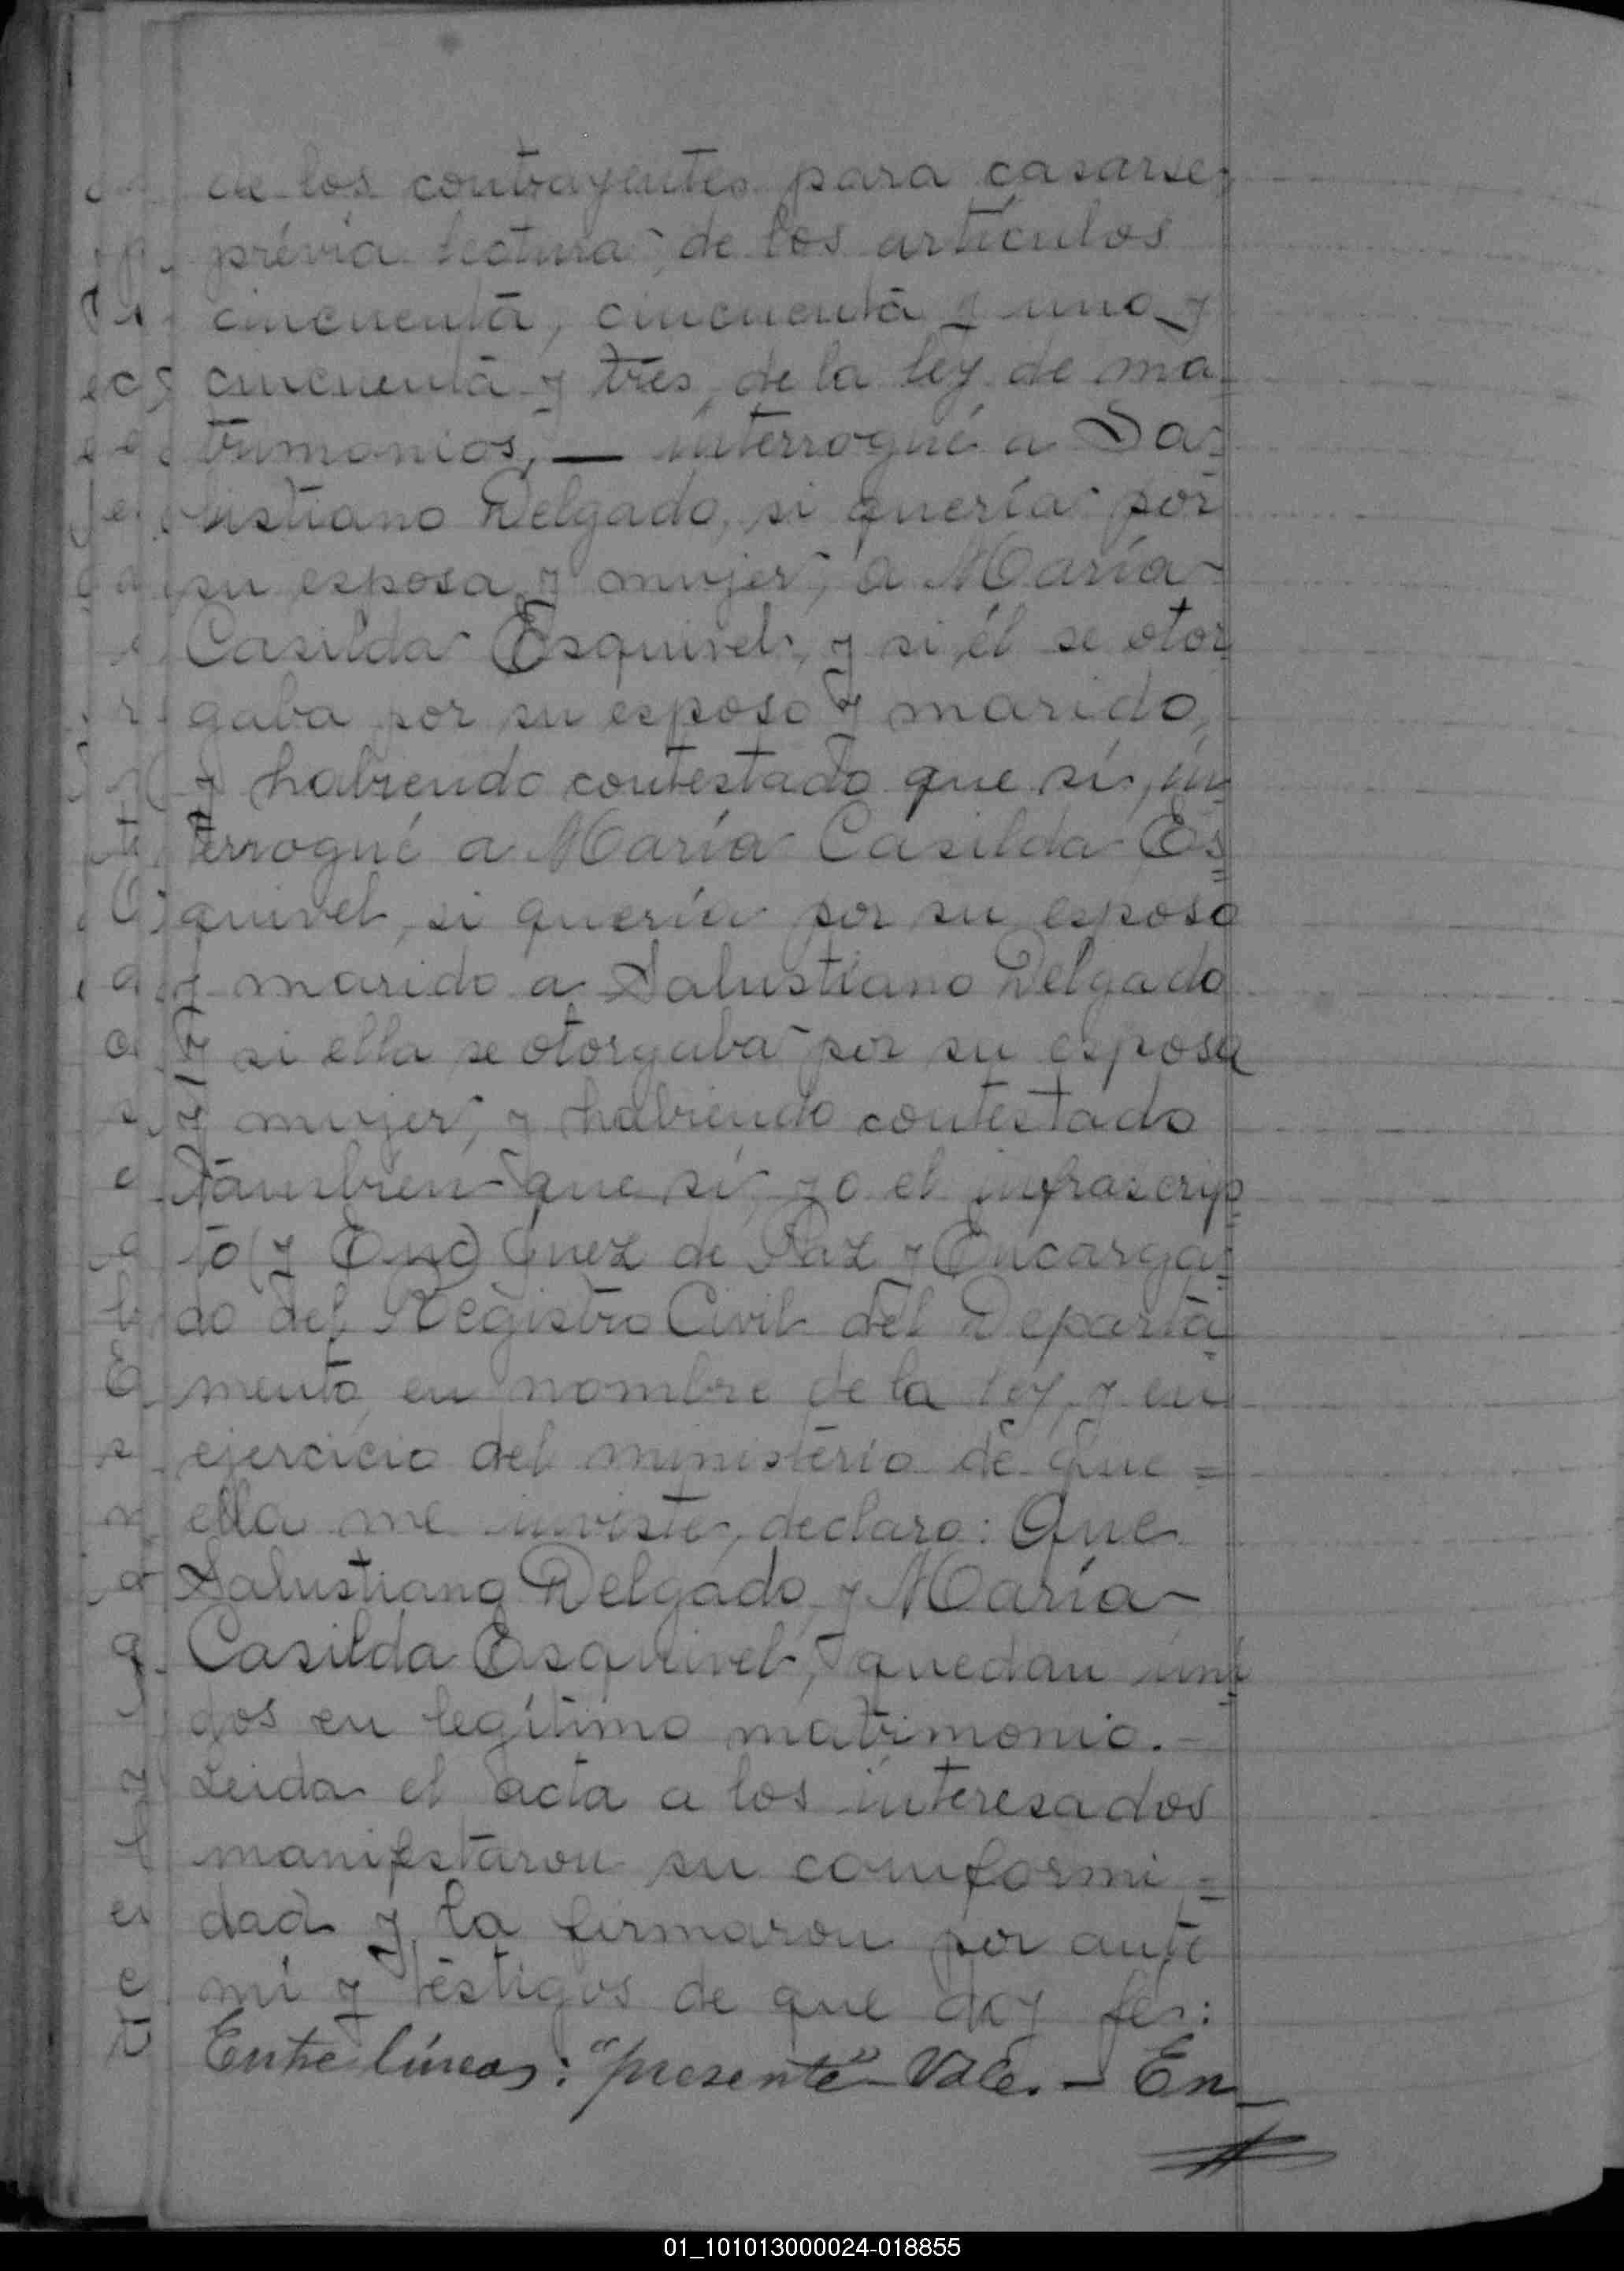 de los contrayentes para casarse,
prévia lectura, de los artículos
cincuenta, cincuenta y uno y
cincuenta y tres, de la ley de ma
trimonios, — interrogué a Sa=
lustiano Delgado, si quería por
su esposa y mujer, a María
Casilda Esquivel, y si él se otor
gaba por su esposo y marido,
y habiendo contestado que sí, in
terrogué a María Casilda Es=
quivel, si quería por su esposo
y marido a Salustiano Delgado
y si ella se otorgaba por su esposa
y mujer, y habiendo contestado
también que sí, yo el infrascrip
to (y Enc) Juez de Paz y Encarga=
do del Registro Civil del Departa=
mento, en nombre de la ley, y en
ejercicio del ministerio de que =
ella me inviste, declaro: Que
Salustiano Delgado, y María
Casilda Esquivel, quedan uni
dos en legítimo matrimonio.-
Leida el acta a los interesados
manifestaron su comformi=
dad y la firmaron por ante
mí y testigos de que doy fe:
Entre líneas: "presente" - Vale. - En
01_101013000024-018855